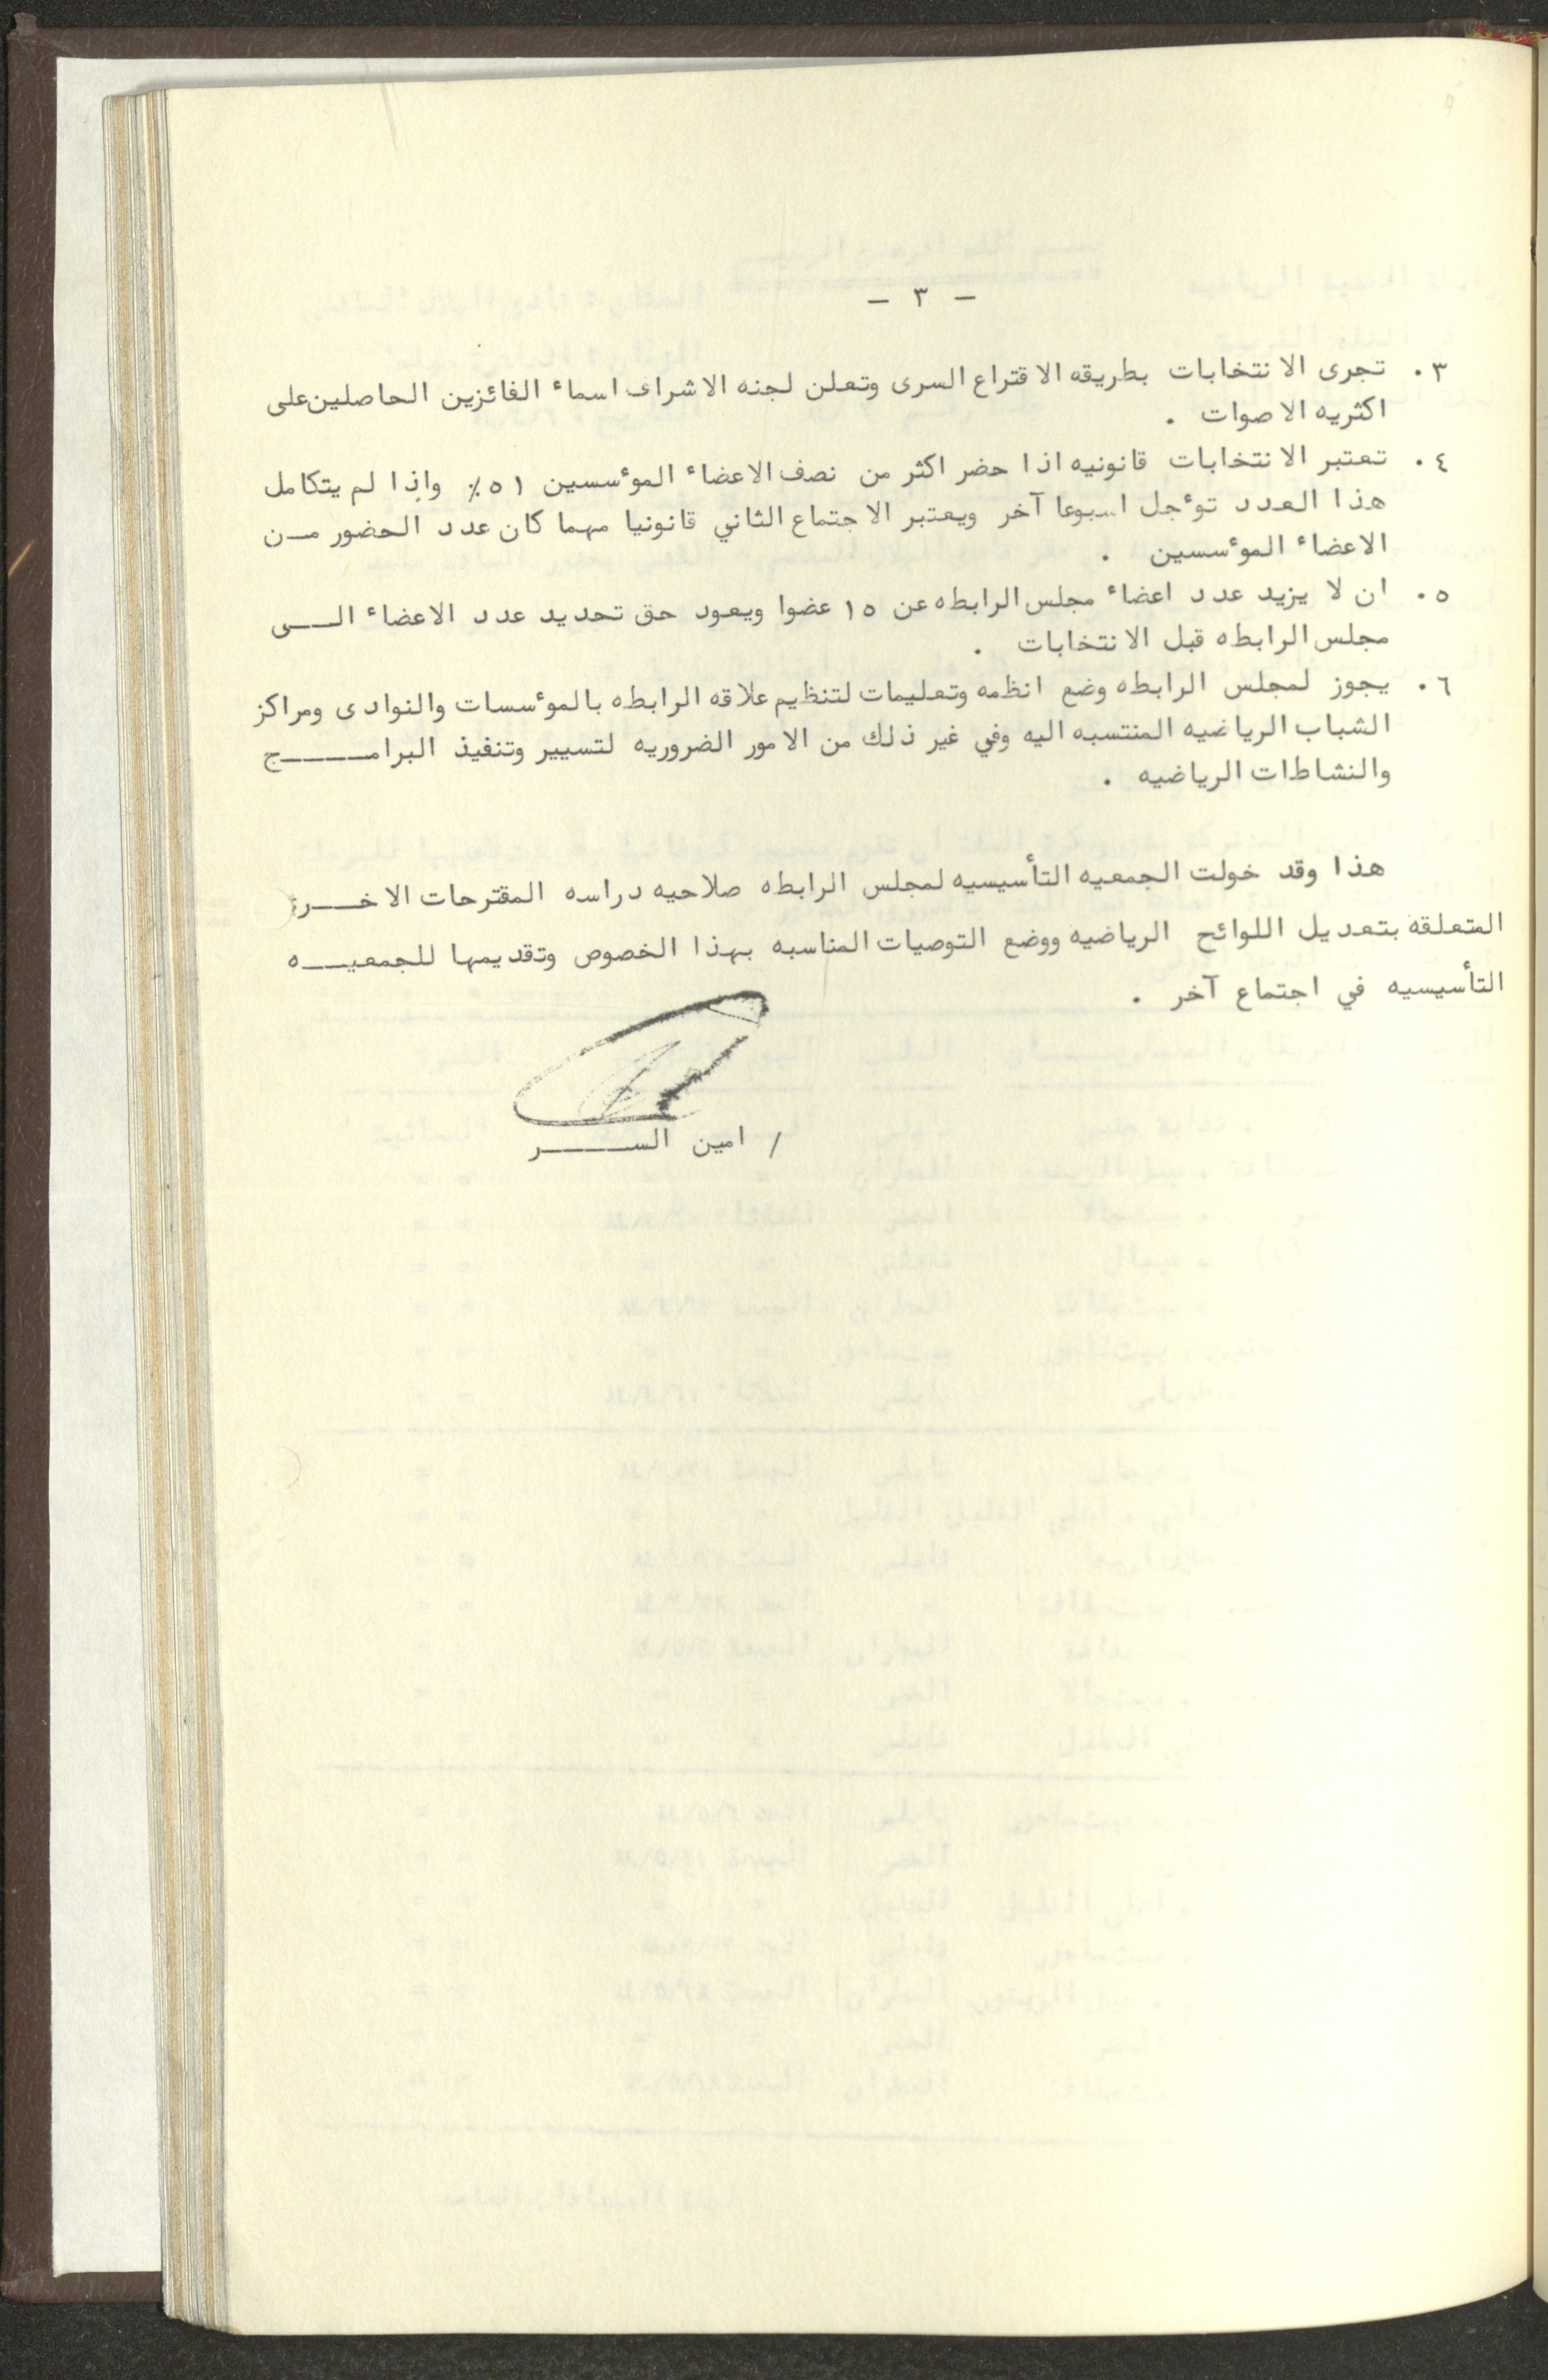 – ٣ –
٣ . تجرى الانتخابات بطريقه الاقتراع السرى وتعلن لجنه الاشراف اسماء الفائزين الحاصلين على
اكثريه الاصوات .
٤ . تعتبر الانتخابات قانونيه اذا حضر اكثر من نصف الاعضاء الموءسسين ٥١٪ واذا لم يتكامل
هذا العدد توءجل اسبوعا آخر ويعتبر الاجتماع الثاني قانونيا مهما كان عدد الحضور مــن
الاعضاء الموءسسين .
٥ . ان لا يزيد عدد اعضاء مجلس الرابطه عن ١٥ عضوا ويعود حق تحديد عدد الاعضاء الــــى
مجلس الرابطه قبل الانتخابات .
٦ . يجوز لمجلس الرابطه وضع انظمه وتعليمات لتنظيم علاقه الرابطه بالموءسسات والنوادى ومراكز
الشباب الرياضيه المنتسبه اليه وفي غير ذلك من الامور الضروريه لتسيير وتنفيذ البرامـــــــج
والنشاطات الرياضيه .
هذا وقد خولت الجمعيه التأسيسيه لمجلس الرابطه صلاحيه دراسه المقترحات الاخــــرى
المتعلقة بتعديل اللوائح الرياضيه ووضع التوصيات المناسبه بهذا الخصوص وتقديمها للجمعيــــه
التأسيسيه في اجتماع آخر .
/ امين الســـــــر